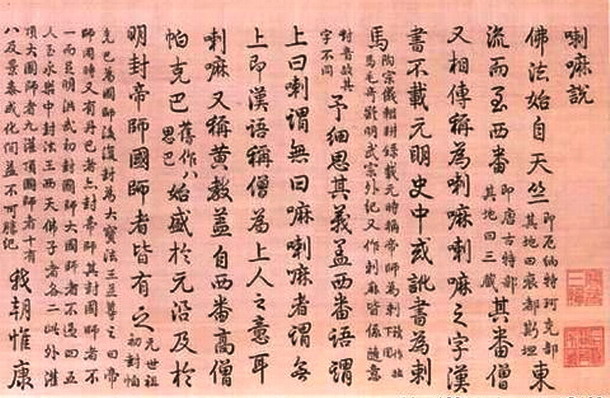 喇嘛說
佛法始自天竺即厄納特珂克部其地曰痕都斯坦東
流而至西番即唐古特部其地曰三藏其番僧
又相傳稱為喇嘛喇嘛之字漢
書不載元明史中或訛書為剌
馬陶宗儀輟耕錄載元時稱帝師為剌馬毛奇齡明武宗外紀又作剌麻皆係隨意
對音故其字不同予細思其義蓋西番語謂
上曰喇謂無曰嘛喇嘛者謂無
上即漢語稱僧為上人之意耳
喇嘛又稱黃教蓋自西番高僧
帕克巴舊作八思巴始盛於元沿及於
明封帝師國師者皆有之元世祖初封帕
克巴為國師後復封為大寶法王並尊之曰帝
師同時又有丹巴者亦封帝師其封國師者不
一而足明洪武初封國師大國師者不過四五
人至永樂中封法王西天佛子者各二此外灌
頂大國師者九灌頂國師者十有
八及景泰成化間益不可勝記我朝惟康